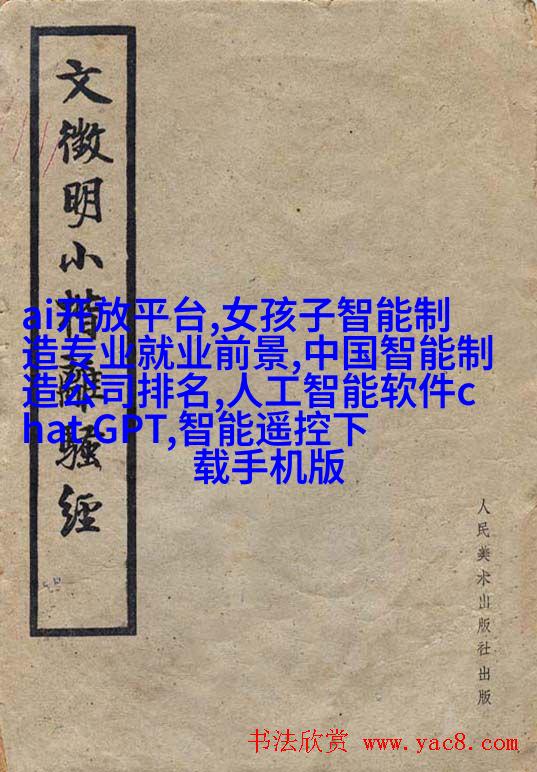 文徵明小楷離騷經
ai开放平台,女孩子智能制
造专业就业前景,中国智能制
造公司排名,人工智能软件c
hat GPT,智能遥控下
载手机版
人民美术出版社出版
书法欣赏 www.yac8.com